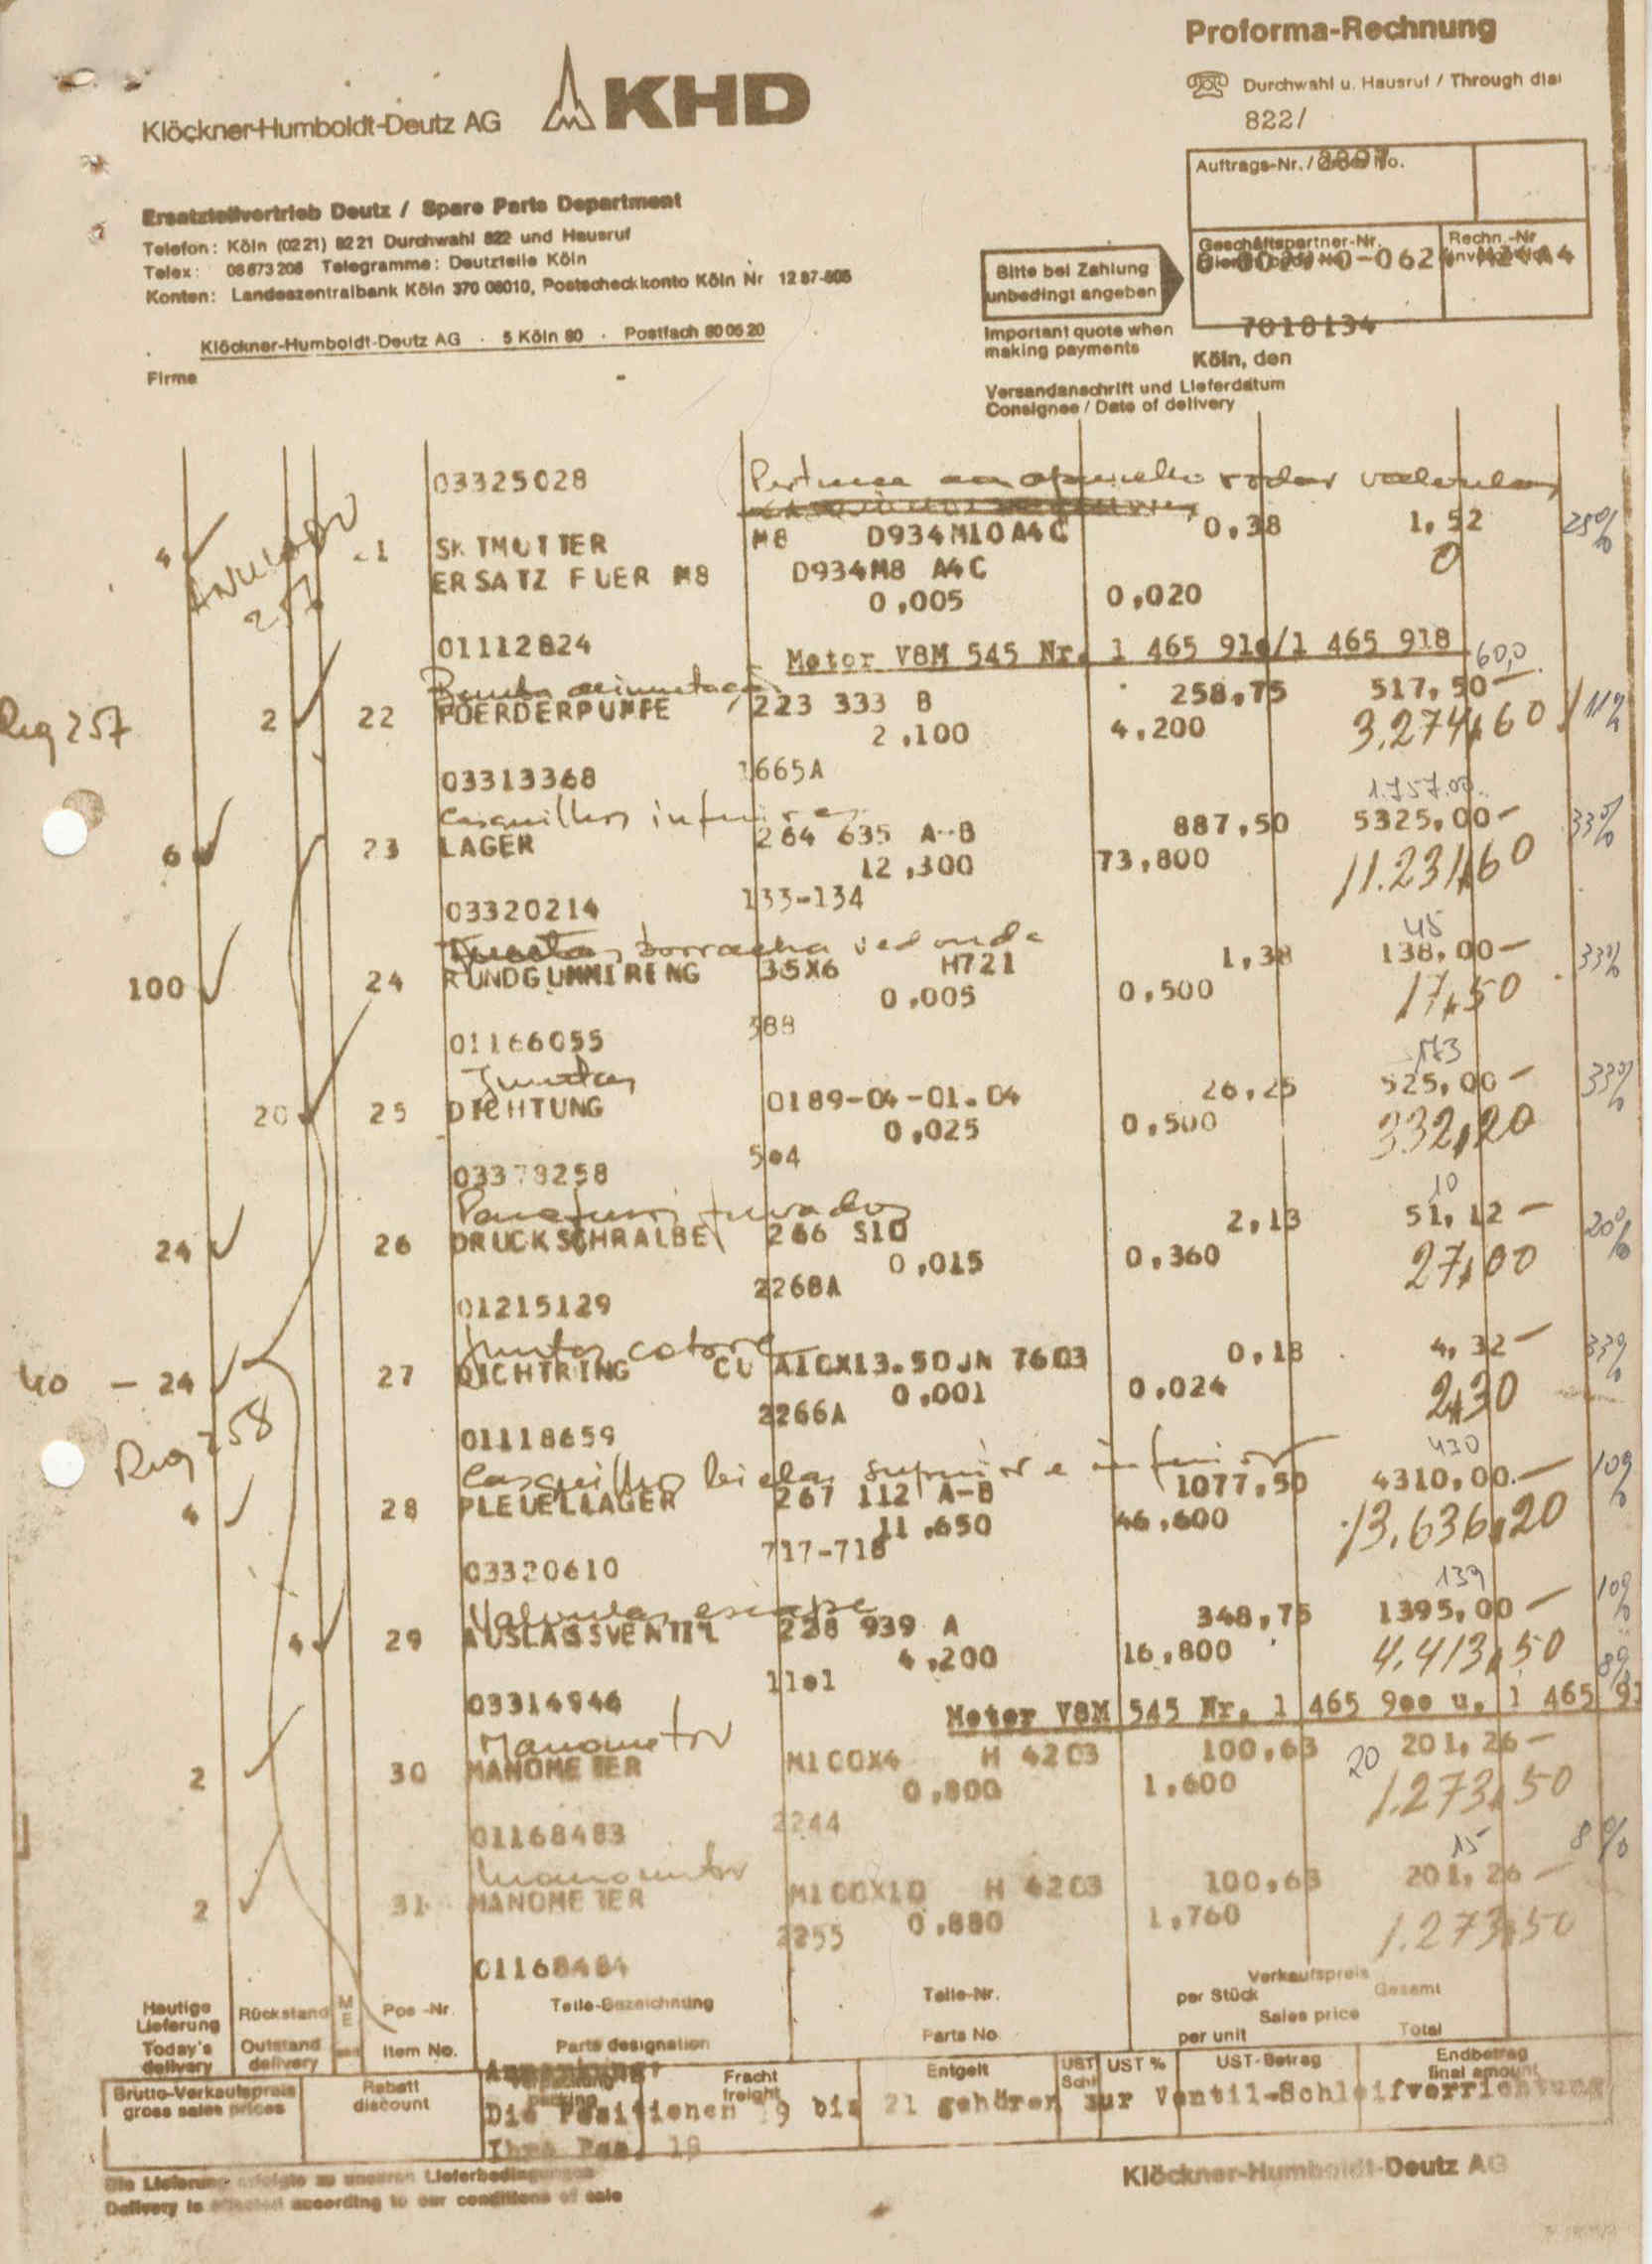 Proforma-Rechnung
Durchwahl u. Hausruf / Through dial
822/
Klöckner-Humboldt-Deutz AG KHD
Auftrags-Nr. / No.
Ersatzteilvertrieb Deutz / Spare Parts Department
Telefon: Köln (0221) 8221 Durchwahl 822 und Hausruf
Telex: 08873208 Telegramme: Deutzteile Köln
Konten: Landeszentralbank Köln 370 08010, Postscheckkonto Köln Nr 1287-505
Geschäftspartner-Nr.
Rechn.-Nr
Bitte bei Zahlung
unbedingt angeben
Important quote when
making payments
7018134
Klöckner-Humboldt-Deutz AG · 5 Köln 80 · Postfach 800520
Köln, den
Firma
Versandanschrift und Lieferdatum
Consignee / Date of delivery
03325028
4 M8 D934M10A4C 0,38 1,52 25%
ERSATZ FUER M8 D934M8 A4C 0
ANULADO 257
0,005 0,020
01112824 Motor V8M 545 Nr. 1 465 918
60,0
Reg 257 2 22 FOERDERPUMPE 223 333 B 258,75 517,50 -
2,100 4,200 3.274,60 11%
03313368 1665A
1.757.00
6 23 LAGER 264 635 A-B 887,50 5325,00 - 33%
12,300 73,800 11.231,60
03320214 133-134
Juntas borracha
45
100 24 RUNDGUMMIRING 35X6 H721 1,38 138,00 - 33%
0,005 0,500 17,50
01166055 388
Juntas
173
20 25 DICHTUNG 0189-04-01.04 26,25 525,00 - 33%
0,025 0,500 332,20
504
10
24 26 DRUCKSCHRAUBE 266 S10 2,13 51,12 - 20%
0,015 0,360 27,00
01215129 2268A
Juntas
40 - 24 27 DICHTRING CU A10X13.5DJN 7603 0,18 4,32 - 33%
0,001 0,024 2,30
01118659 2266A
Reg 258
Casquillos bielas superior e inferior
430
4 28 PLEUELLAGER 267 112 A-B 1077,50 4310,00.- 10%
11,650 46,600 13.636,20
03320610 717-718
Valvulas escape
139
4 29 AUSLASSVENTIL 228 939 A 348,75 1395,00 - 10%
4,200 16,800 4.413,50
03314946 1101 8%
Motor V8M 545 Nr. 1 465 900 u. 1 465 91
Manometro
2 30 MANOMETER M100X4 H 4203 100,63 20 201,26 -
0,800 1,600 1.273,50
01168483 2244
15 8%
2 31 MANOMETER M100X10 H 4203 100,63 201,26 -
0,880 1,760 1.273,50
01168484 2255
Heutige Lieferung Rückstand ME Pos-Nr Teile-Bezeichnung Teile-Nr. Verkaufspreis per Stück Gesamt
Today's delivery Outstand delivery Item No. Parts designation Parts No Sales price per unit Total
Brutto-Verkaufspreis gross sales prices Rabatt discount Fracht freight Entgelt UST Schl UST % UST-Betrag Endbetrag final amount
Anmerkung:
Die Positionen 19 bis 21 gehören zur Ventil-Schleifvorrichtung
Ihre Pos. 19
Die Lieferung erfolgte zu unseren Lieferbedingungen
Delivery is effected according to our conditions of sale
Klöckner-Humboldt-Deutz AG